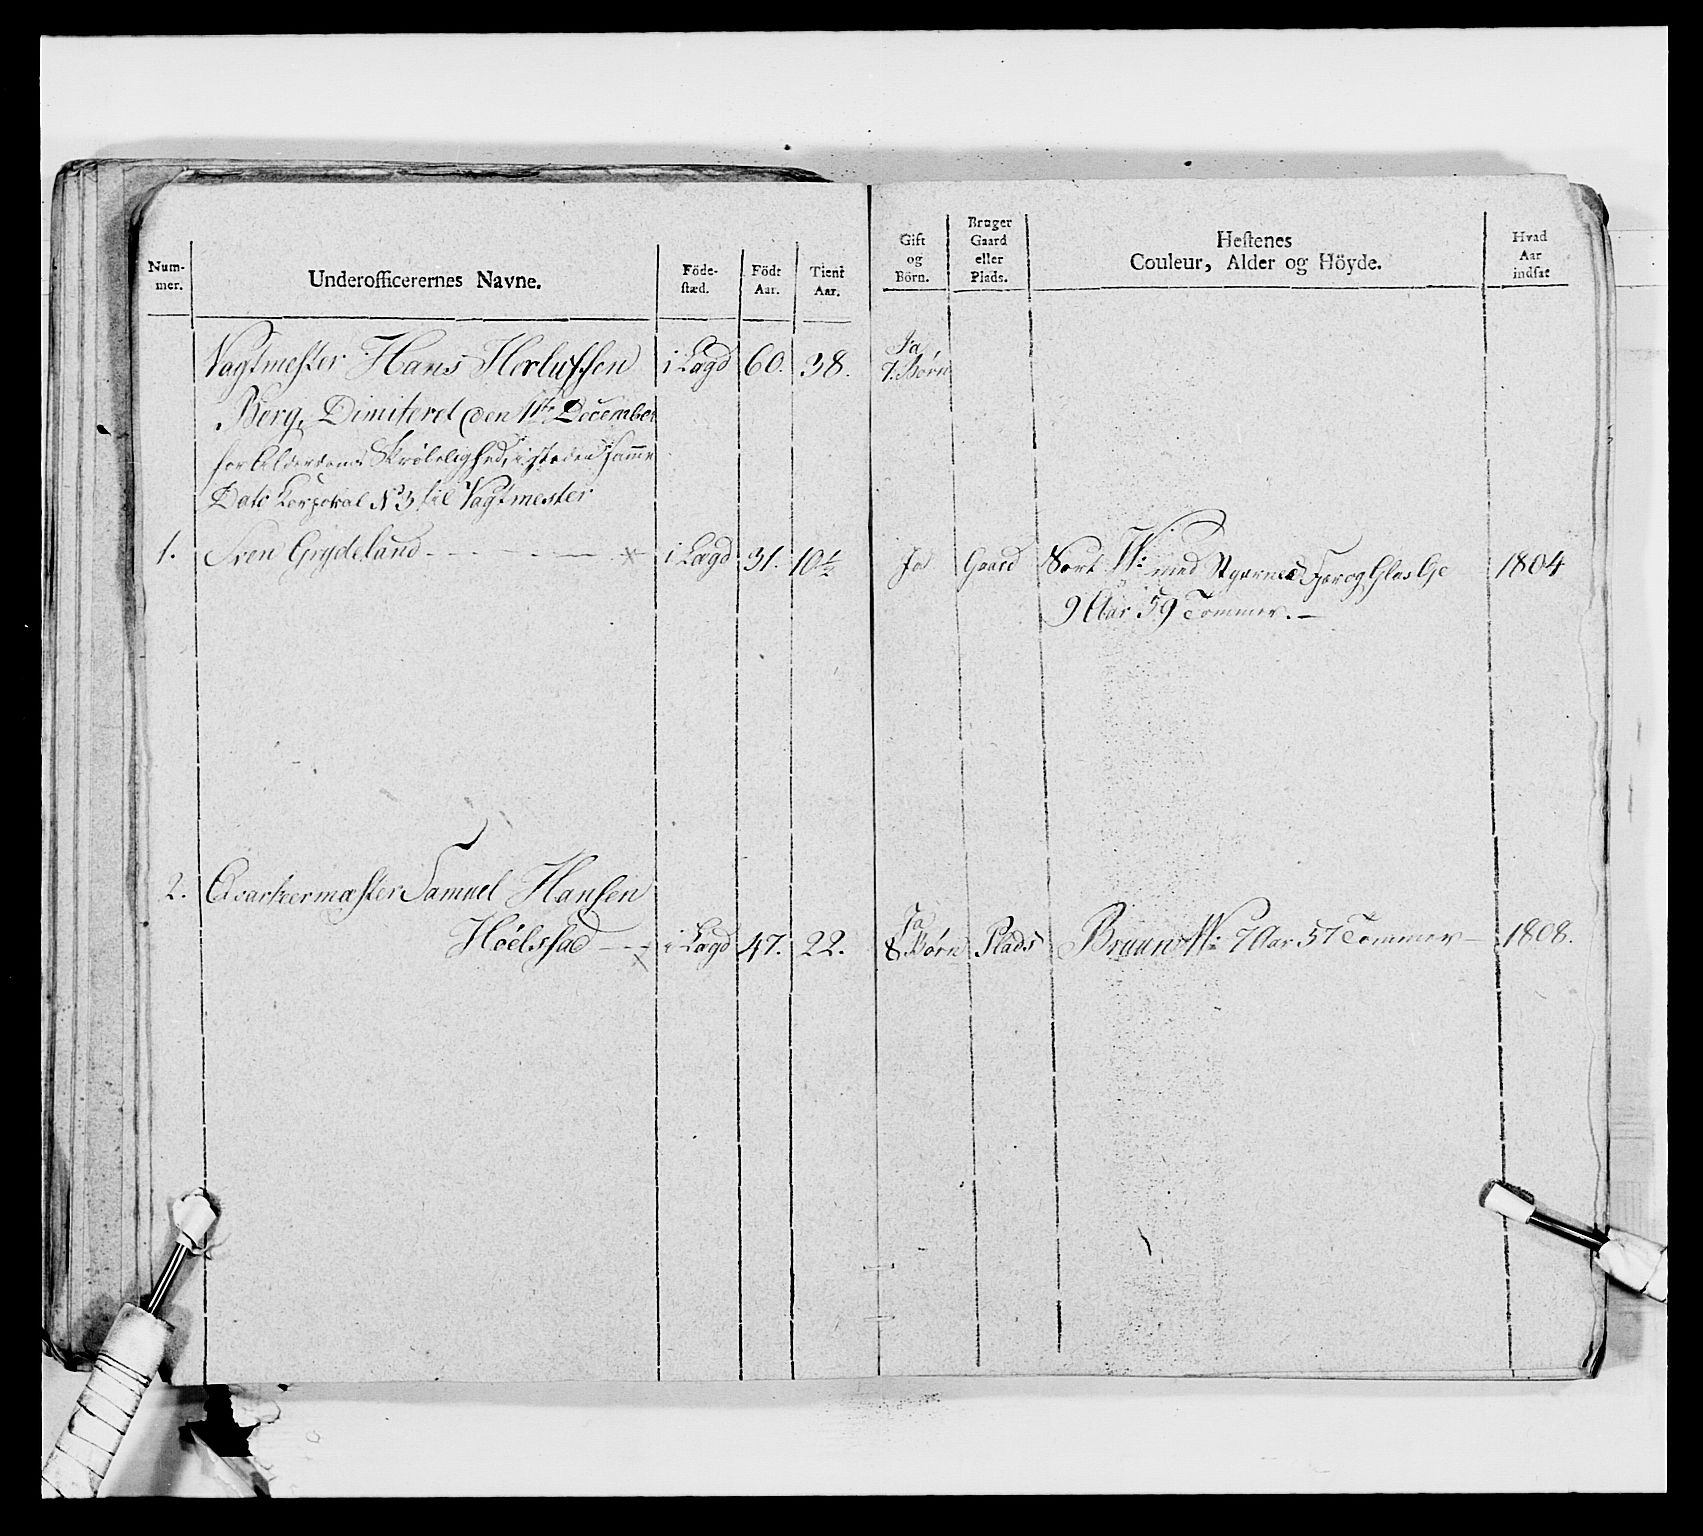 Num-
mer.
Underofficerernes Navne.
Föde-
stæd.
Födt
Aar.
Tient
Aar.
Gift
og
Börn.
Bruger
Gaard
eller
Plads.
Hestenes
Couleur, Alder og Höyde.
Hvad
Aar
indsat
Vagtmester Hans Herlufsen i Lægd 60. 38. Ja
7. Børn
Berg, Dimiteret den 11te December
for Alderdoms Skrøbelighed, isteden samme
Dato Korporal N 3 til Vagtmester
1. Sven Grydeland i Lægd 31. 10½ Ja Gaard Sort W: med Stjerne og Glas Øje 1804
9 Aar 59 Tommer.
2. Qvarteermester Samuel Hansen
Høelsfad i Lægd 47. 22. Ja
8 Børn Plads Bruun W: 7 Aar 57 Tommer 1808.